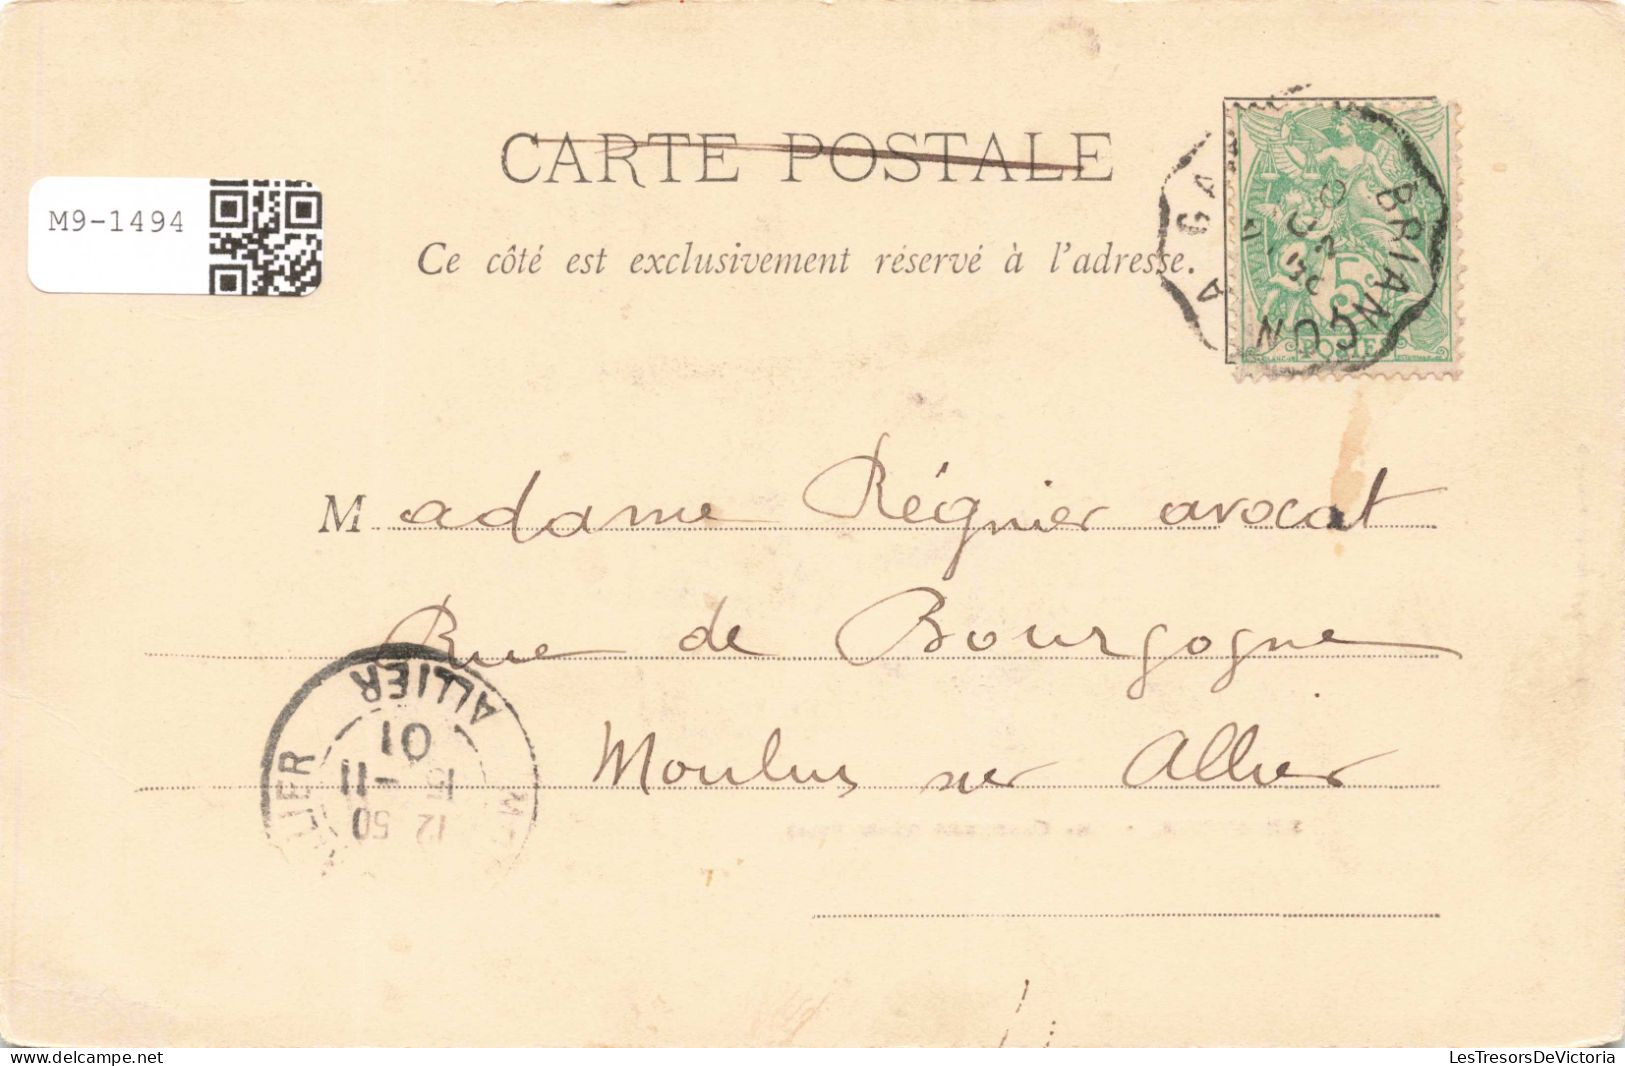 CARTE POSTALE
M9-1494
Ce côté est exclusivement réservé à l'adresse.
BRIANÇON A GA
5
POSTES
Madame Régnier avocat
Rue de Bourgogne
Moulins sur Allier
ALLIER
01
-11
12 50
LesTresorsDeVictoria
delcampe.net